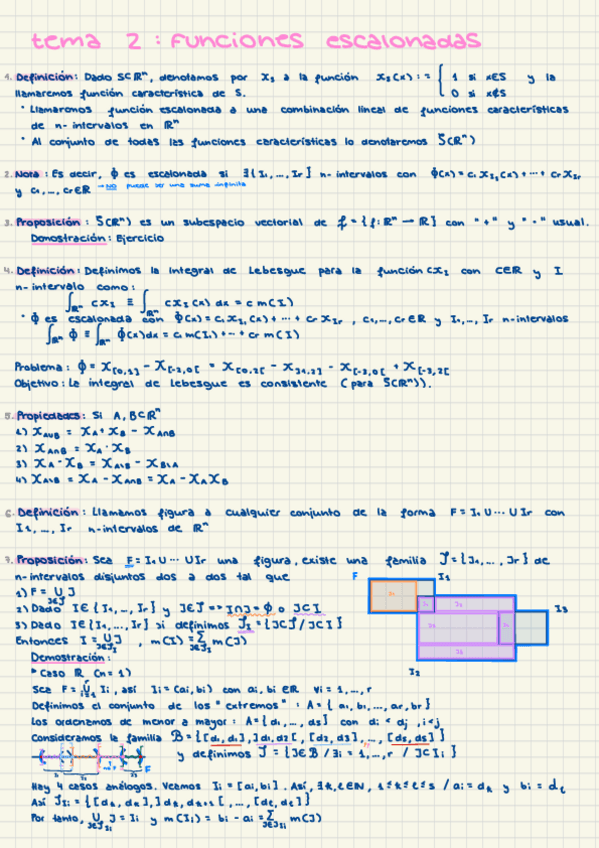 tema 2: funciones escalonadas
1. Definición: Dado S⊂ℝⁿ, denotamos por χ_S a la función χ_S(x) := { 1 si x∈S y la
0 si x∉S
llamaremos función característica de S.
• Llamaremos función escalonada a una combinación lineal de funciones características
de n-intervalos en ℝⁿ
• Al conjunto de todas las funciones características lo denotaremos S(ℝⁿ)
2. Nota: Es decir, ϕ es escalonada si ∃{I₁,...,Ir} n-intervalos con ϕ(x) = c₁χ_I₁(x) + ··· + crχ_Ir
y c₁,...,cr∈ℝ → NO puede ser una suma infinita
3. Proposición: S(ℝⁿ) es un subespacio vectorial de f = {f: ℝⁿ → ℝ} con "+" y "·" usual.
Demostración: Ejercicio
4. Definición: Definimos la integral de Lebesgue para la función cχ_I con c∈ℝ y I
n-intervalo como:
∫_ℝⁿ cχ_I ≡ ∫_ℝⁿ cχ_I(x) dx = c m(I)
• ϕ es escalonada con ϕ(x) = c₁χ_I₁(x) + ··· + crχ_Ir, c₁,...,cr∈ℝ y I₁,..., Ir n-intervalos
∫_ℝⁿ ϕ ≡ ∫_ℝⁿ ϕ(x)dx = c₁m(I₁) + ··· + cr m(Ir)
Problema: ϕ = χ_[0,1] − χ_[-2,0[ = χ_[0,2[ − χ_]1,2] − χ_[-3,0[ + χ_[-3,2[
Objetivo: La integral de Lebesgue es consistente (para S(ℝⁿ)).
5. Propiedades: Si A, B⊂ℝⁿ
1) χ_A∪B = χ_A + χ_B − χ_A∩B
2) χ_A∩B = χ_A · χ_B
3) χ_A - χ_B = χ_A\B − χ_B\A
4) χ_A\B = χ_A − χ_A∩B = χ_A − χ_Aχ_B
6. Definición: Llamamos figura a cualquier conjunto de la forma F = I₁∪···∪Ir con
I₁,..., Ir n-intervalos de ℝⁿ
7. Proposición: Sea F = I₁∪···∪Ir una figura, existe una familia J = {J₁,..., Jr} de
n-intervalos disjuntos dos a dos tal que
F I₁
1) F = ∪_J∈J J
2) Dado I∈{I₁,..., Ir} y J∈J => I∩J = ϕ o J⊂I
I₃
3) Dado I∈{I₁,..., Ir} si definimos J_I = {J∈J / J⊂I}
Entonces I = ∪_J∈J_I J , m(I) = Σ_J∈J_I m(J)
Demostración:
I₂
• Caso ℝ (n = 1)
Sea F = ∪ᵢ₌₁ʳ Iᵢ, así Iᵢ = (aᵢ, bᵢ) con aᵢ, bᵢ ∈ℝ ∀i = 1,..., r
Definimos el conjunto de los "extremos": A = {a₁, b₁,..., ar, br}
Los ordenamos de menor a mayor: A = {d₁,..., ds} con dᵢ < dⱼ, i<j
Consideramos la familia B = {[d₁, d₁], ]d₁, d₂[, [d₂, d₂],..., [ds, ds]}
y definimos J = {J∈B / ∃i = 1,..., r / J⊂Iᵢ}
F
Hay 4 casos análogos. Veamos Iᵢ = [aᵢ, bᵢ]. Así, ∃k, ℓ∈ℕ, 1≤k≤ℓ≤s / aᵢ = dk y bᵢ = dℓ
Así J_Iᵢ = {[dk, dk], ]dk, dk+1[,..., [dℓ, dℓ]}
Por tanto, ∪_J∈J_Iᵢ J = Iᵢ y m(Iᵢ) = bᵢ − aᵢ = Σ_J∈J_Iᵢ m(J)